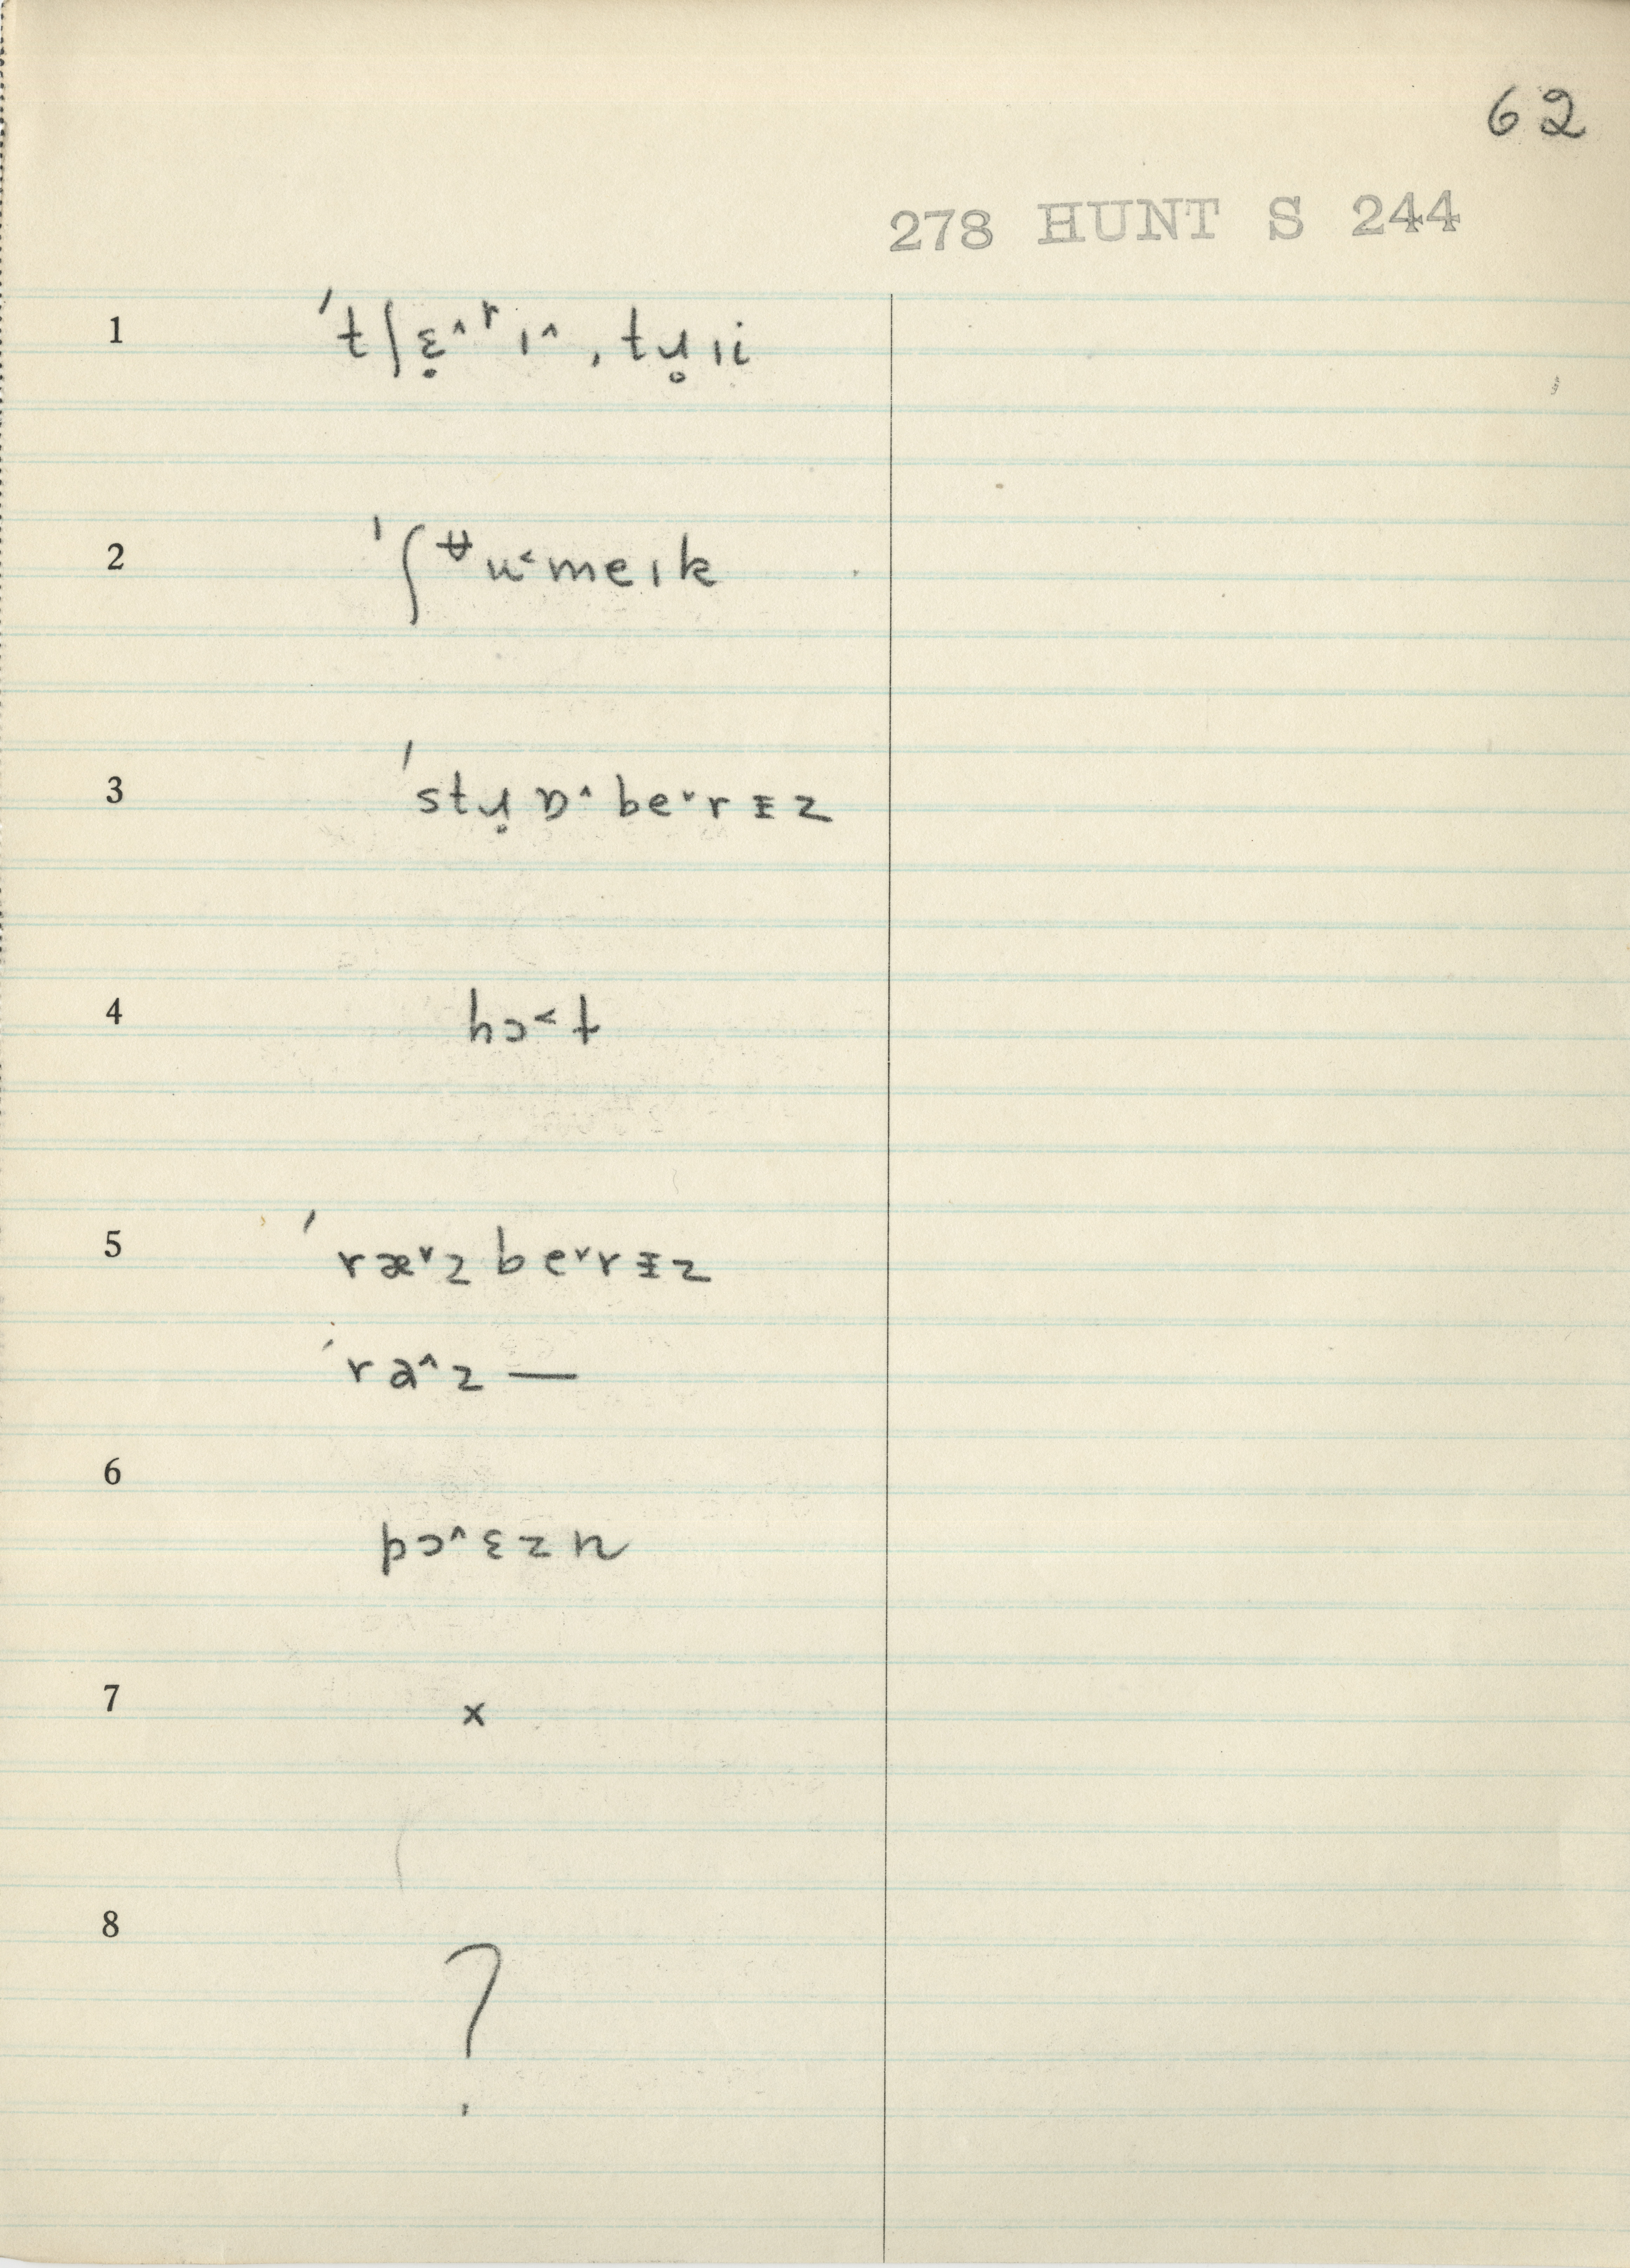 62
278 HUNT S 244
1 ˈtʃɛ̣˄ʳɪ˄ˌtɹ̥ɪi
2 ˈʃᵿu˂meɪk
3 ˈstɹ̣ɒ˄be˅rᵻz
4 hɔ˂t
5 ˈræ˅zbe˅rᵻz
ˈra˄z —
6 pɔ˄ɛzn
7 x
8 ?